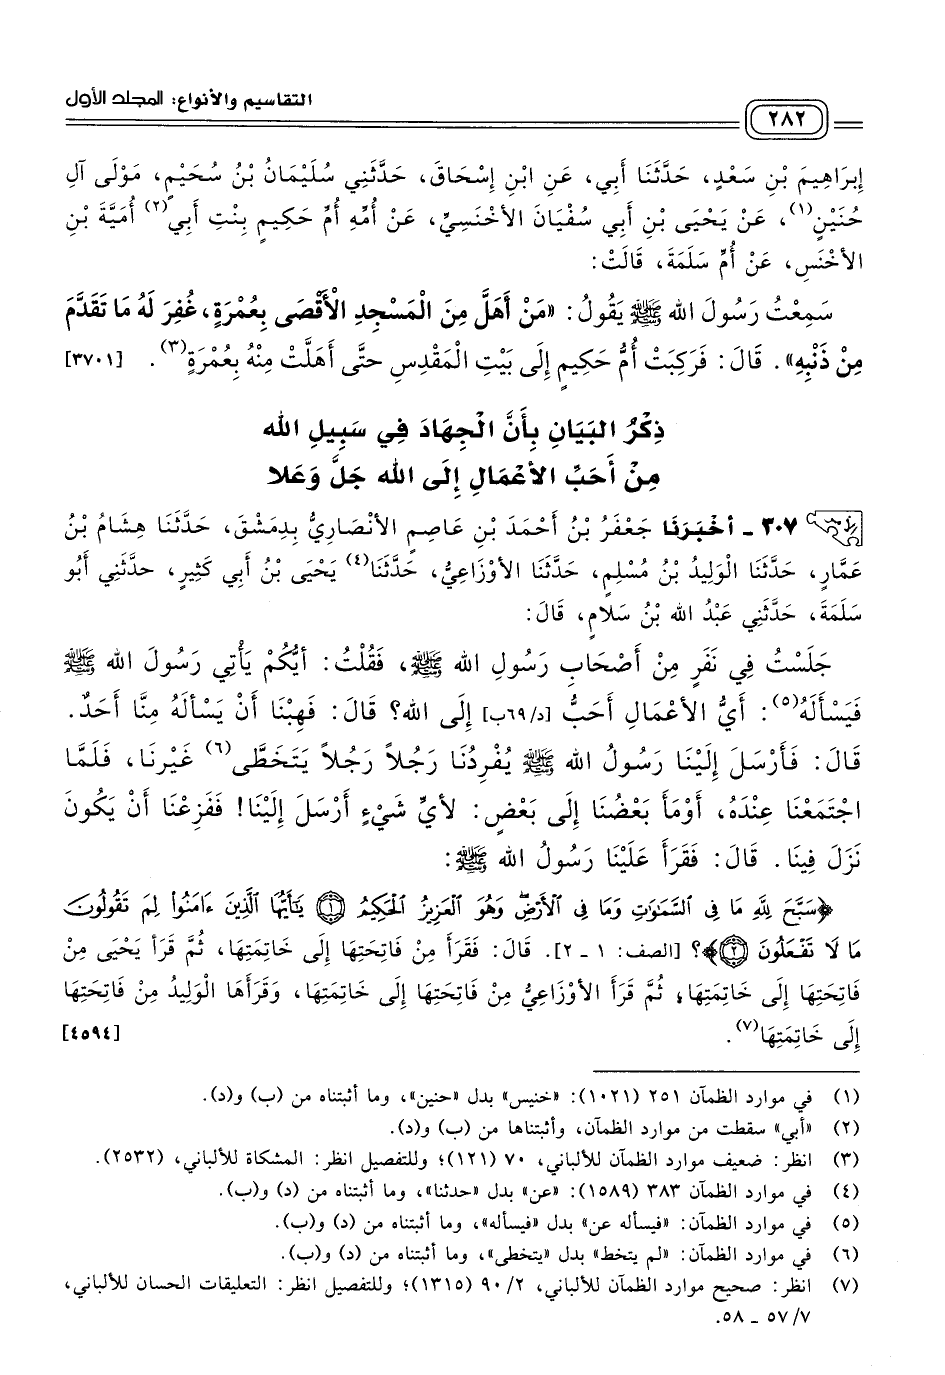 التقاسيم والأنواع: المجلد الأول
٢٨٢
إِبرَاهِيمَ بْنِ سَعْدٍ، حَدَّثَنَا أَبِي، عَنِ ابْنِ إِسْحَاقَ، حَدَّثَنِي سُلَيْمَانُ بْنُ سُحَيْمٍ، مَوْلَى آلِ
حُنَيْنٍ(١)، عَنْ يَحْيَى بْنِ أَبِي سُفْيَانَ الأَخْنَسِيِّ، عَنْ أُمِّهِ أُمِّ حَكِيمٍ بِنْتِ أَبِي(٢) أُمَيَّةَ بْنِ
الأَخْنَسِ، عَنْ أُمِّ سَلَمَةَ، قَالَتْ:
سَمِعْتُ رَسُولَ الله ﷺ يَقُولُ: «مَنْ أَهَلَّ مِنَ الْمَسْجِدِ الْأَقْصَى بِعُمْرَةٍ، غُفِرَ لَهُ مَا تَقَدَّمَ
مِنْ ذَنْبِهِ». قَالَ: فَرَكِبَتْ أُمُّ حَكِيمٍ إِلَى بَيْتِ الْمَقْدِسِ حتَّى أَهَلَّتْ مِنْهُ بِعُمْرَةٍ(٣). [٣٧٠١]
ذِكْرُ البَيَانِ بِأَنَّ الْجِهَادَ فِي سَبِيلِ الله
مِنْ أَحَبِّ الأَعْمَالِ إِلَى الله جَلَّ وَعَلا
٣٠٧ - أخْبَرَنَا جَعْفَرُ بْنُ أَحْمَدَ بْنِ عَاصِمٍ الأنْصَارِيُّ بِدِمَشْقَ، حَدَّثَنَا هِشَامُ بْنُ
عَمَّارٍ، حَدَّثَنَا الْوَلِيدُ بْنُ مُسْلِمٍ، حَدَّثَنَا الأَوْزَاعِيُّ، حَدَّثَنَا(٤) يَحْيَى بْنُ أَبِي كَثِيرٍ، حدَّثَنِي أَبُو
سَلَمَةَ، حَدَّثَنِي عَبْدُ الله بْنُ سَلَامٍ، قَالَ:
جَلَسْتُ فِي نَفَرٍ مِنْ أَصْحَابِ رَسُولِ الله ﷺ، فَقُلْتُ: أيُّكُمْ يَأْتِي رَسُولَ الله ﷺ
فَيَسْأَلَهُ(٥): أَيُّ الأَعْمَالِ أَحَبُّ [د/٦٩ب] إِلَى الله؟ قَالَ: فَهِبْنَا أَنْ يَسْأَلَهُ مِنَّا أَحَدٌ.
قَالَ: فَأَرْسَلَ إِلَيْنَا رَسُولُ الله ﷺ يُفْرِدُنَا رَجُلاً رَجُلاً يَتَخَطَّى(٦) غَيْرَنَا، فَلَمَّا
اجْتَمَعْنَا عِنْدَهُ، أَوْمَأَ بَعْضُنَا إِلَى بَعْضٍ: لأيِّ شَيْءٍ أَرْسَلَ إِلَيْنَا! فَفَزِعْنَا أَنْ يَكُونَ
نَزَلَ فِينَا. قَالَ: فَقَرَأَ عَلَيْنَا رَسُولُ الله ﷺ:
﴿سَبَّحَ لِلَّهِ مَا فِي السَّمَٰوَٰتِ وَمَا فِي الْأَرْضِ وَهُوَ الْعَزِيزُ الْحَكِيمُ ۝١ يَٰٓأَيُّهَا الَّذِينَ ءَامَنُوا لِمَ تَقُولُونَ
مَا لَا تَفْعَلُونَ ۝٢﴾؟ [الصف: ١ - ٢]. قَالَ: فَقَرَأَ مِنْ فَاتِحَتِهَا إِلَى خَاتِمَتِهَا، ثُمَّ قَرَأَ يَحْيَى مِنْ
فَاتِحَتِهَا إِلَى خَاتِمَتِهَا، ثُمَّ قَرَأَ الأَوْزَاعِيُّ مِنْ فَاتِحَتِهَا إِلَى خَاتِمَتِهَا، وَقَرَأَهَا الْوَلِيدُ مِنْ فَاتِحَتِهَا
إِلَى خَاتِمَتِهَا(٧). [٤٥٩٤]
(١) في موارد الظمآن ٢٥١ (١٠٢١): «خنيس» بدل «حنين»، وما أثبتناه من (ب) و(د).
(٢) «أبي» سقطت من موارد الظمآن، وأثبتناها من (ب) و(د).
(٣) انظر: ضعيف موارد الظمآن للألباني، ٧٠ (١٢١)؛ وللتفصيل انظر: المشكاة للألباني، (٢٥٣٢).
(٤) في موارد الظمآن ٣٨٣ (١٥٨٩): «عن» بدل «حدثنا»، وما أثبتناه من (د) و(ب).
(٥) في موارد الظمآن: «فيسأله عن» بدل «فيسأله»، وما أثبتناه من (د) و(ب).
(٦) في موارد الظمآن: «لم يتخط» بدل «يتخطى»، وما أثبتناه من (د) و(ب).
(٧) انظر: صحيح موارد الظمآن للألباني، ٩٠/٢ (١٣١٥)؛ وللتفصيل انظر: التعليقات الحسان للألباني،
٧/ ٥٧ - ٥٨.